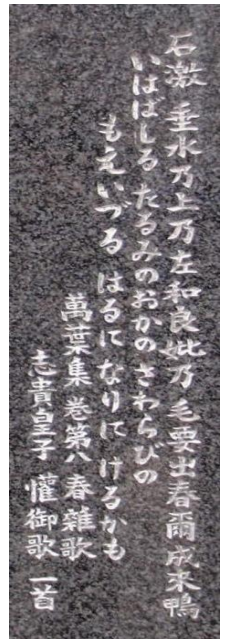 石激 垂水乃上乃左和良妣乃毛要出春爾成来鴨
いはばしる たるみのおかの さわらびの
もえいづる はるに なりに けるかも
萬葉集 巻第八 春雑歌
志貴皇子 懽御歌 一首